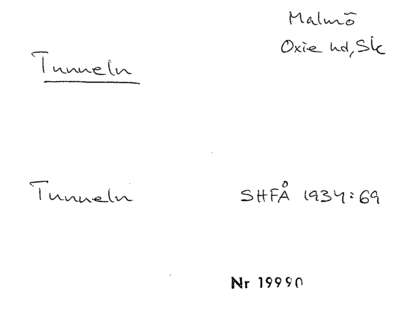 Malmö
Oxie hd, Sk
Tunneln
Tunneln SHFÅ 1934:69
Nr 19990